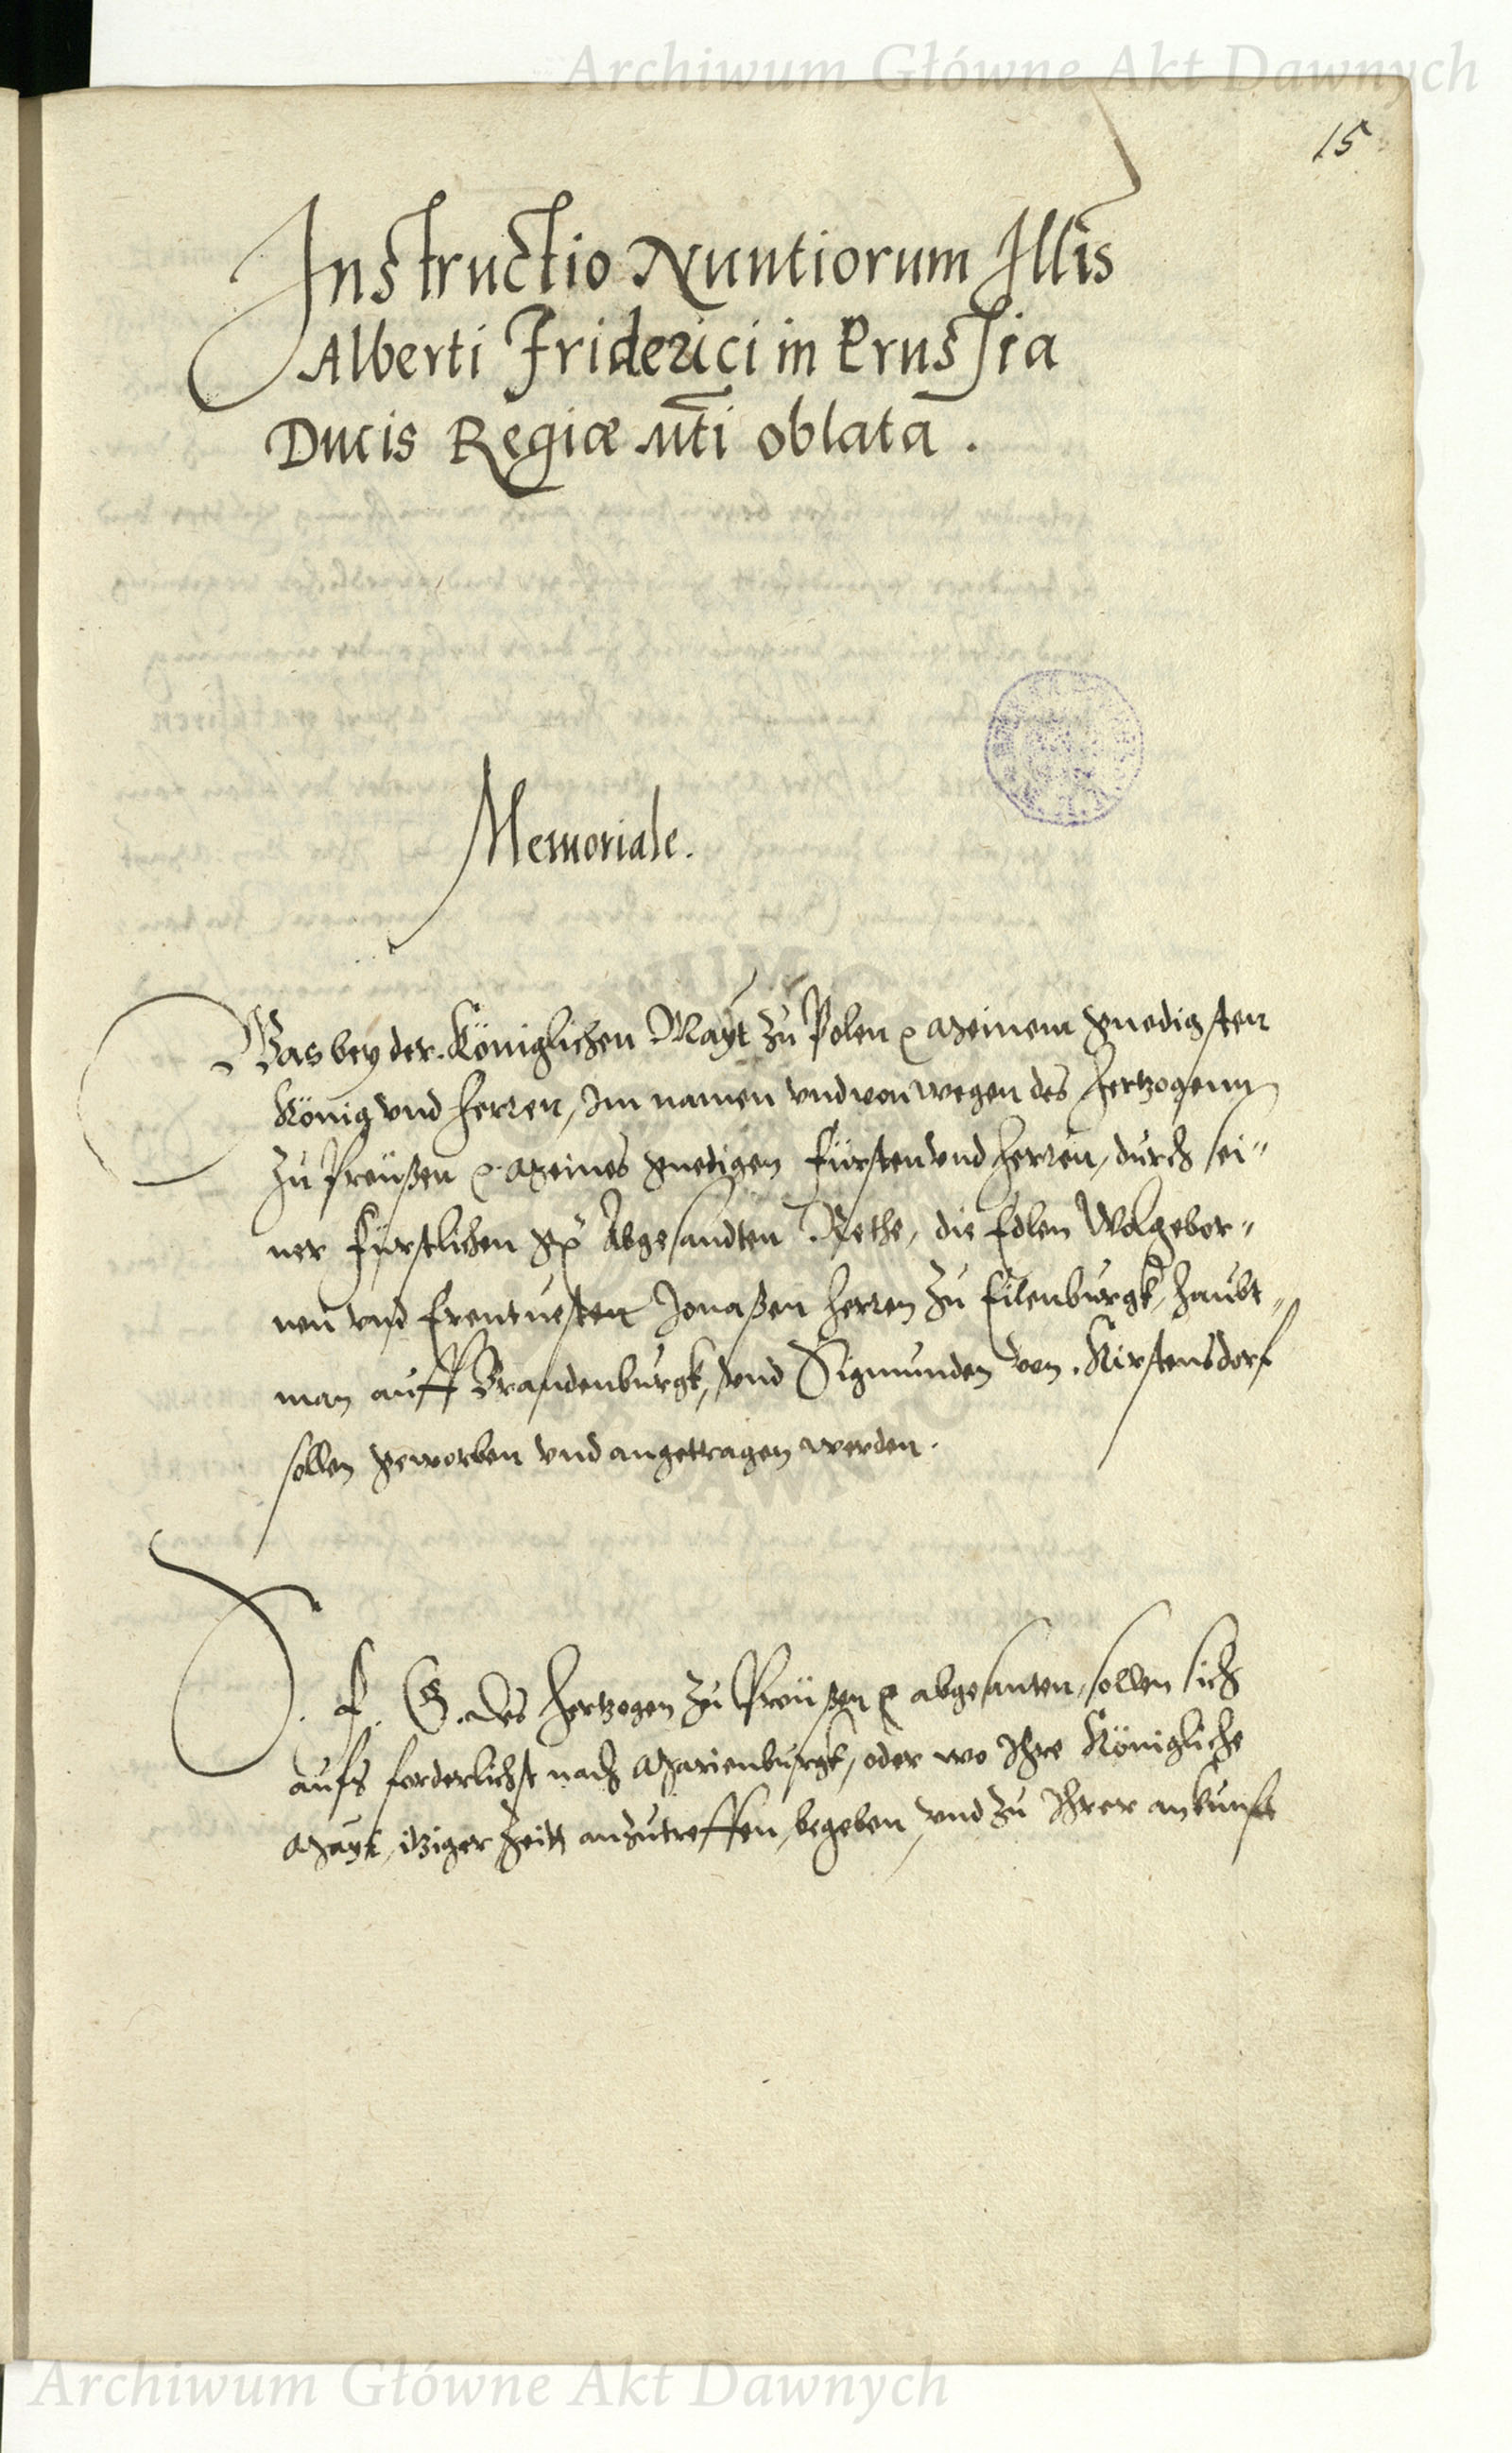 Archiwum Główne Akt Dawnych
15
Instructio Nuntiorum Illis
Alberti Friderici in Prussia
Ducis Regiæ Mti oblata.
Memoriale.
Was bey der Königlichen Mayt zu Polen ꝛ Meinem gnedigsten
König vnd Herren, Im namen vnd von wegen des Hertzogenn
zu Preüßen ꝛ Meines gnedigen Fürsten vnd Herren, durch sei„
ner Fürstlichen Abgesandten Rethe, die Edlen Wolgebor„
nen vnd Erentuesten Jonaßen Herren zu Eilenburgk, Haubt„
man auff Brandenburgk, vnd Sigmunden von Kirstensdorf
sollen geworben vnd angettragen werden.
F. G. des Hertzogen zu Preüßen ꝛ abgesanten, sollen sich
aufs forderlichst nach Marienburgk, oder wo Ihre Königliche
Mayt, itziger Zeitt anzutreffen, begeben, vnd zu Ihrer ankunfft
Archiwum Główne Akt Dawnych